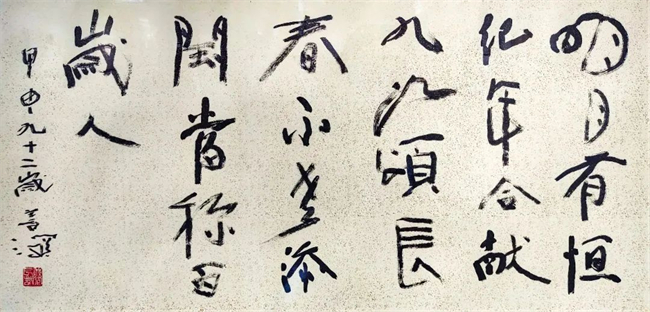 明月有恒
纪年合献
九如頌長
春不老添
閏當称百
歲人
甲申九十二歲